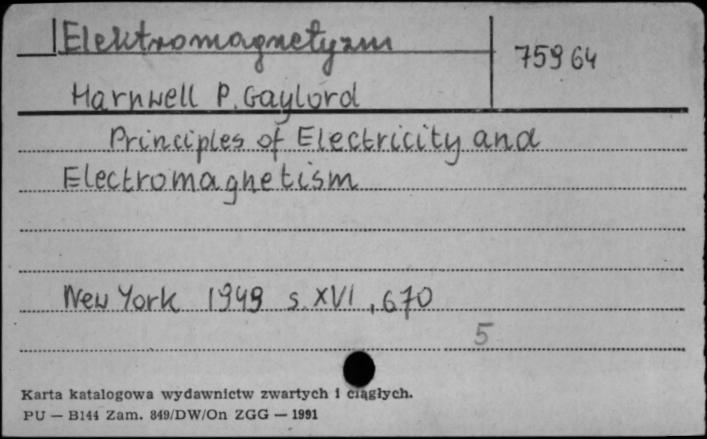 Elektromagnetyzm
75964
Harnwell P. Gaylord
Principles of Electricity and
Electromagnetism
New York 1949 s. XVI, 670
5
Karta katalogowa wydawnictw zwartych i ciągłych.
PU — B144 Zam. 849/DW/On ZGG — 1991